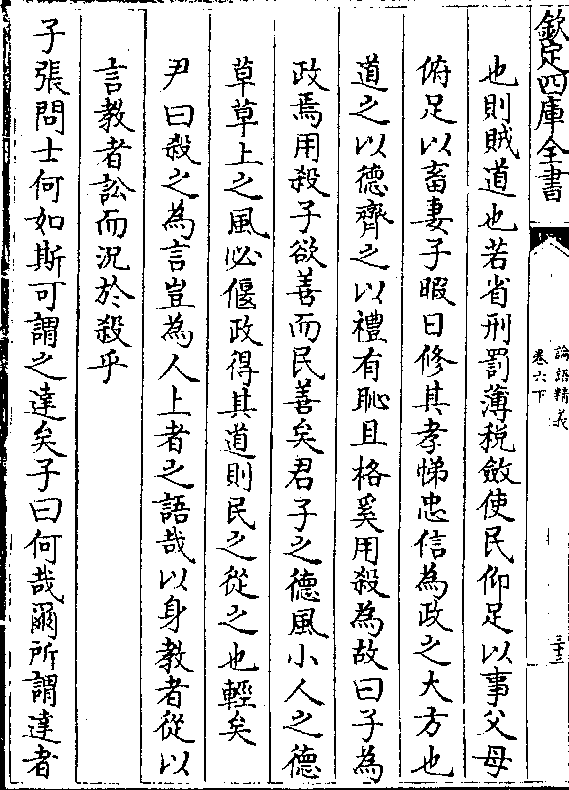 欽定四庫全書
論語精義
卷六下
三十三
也則賊道也若省刑罰薄稅斂使民仰足以事父母
俯足以畜妻子暇日修其孝悌忠信為政之大方也
道之以德齊之以禮有恥且格奚用殺為故曰子為
政焉用殺子欲善而民善矣君子之德風小人之德
草草上之風必偃政得其道則民之從之也輕矣
尹曰殺之為言豈為人上者之語哉以身教者從以
言教者訟而況於殺乎
子張問士何如斯可謂之達矣子曰何哉爾所謂達者